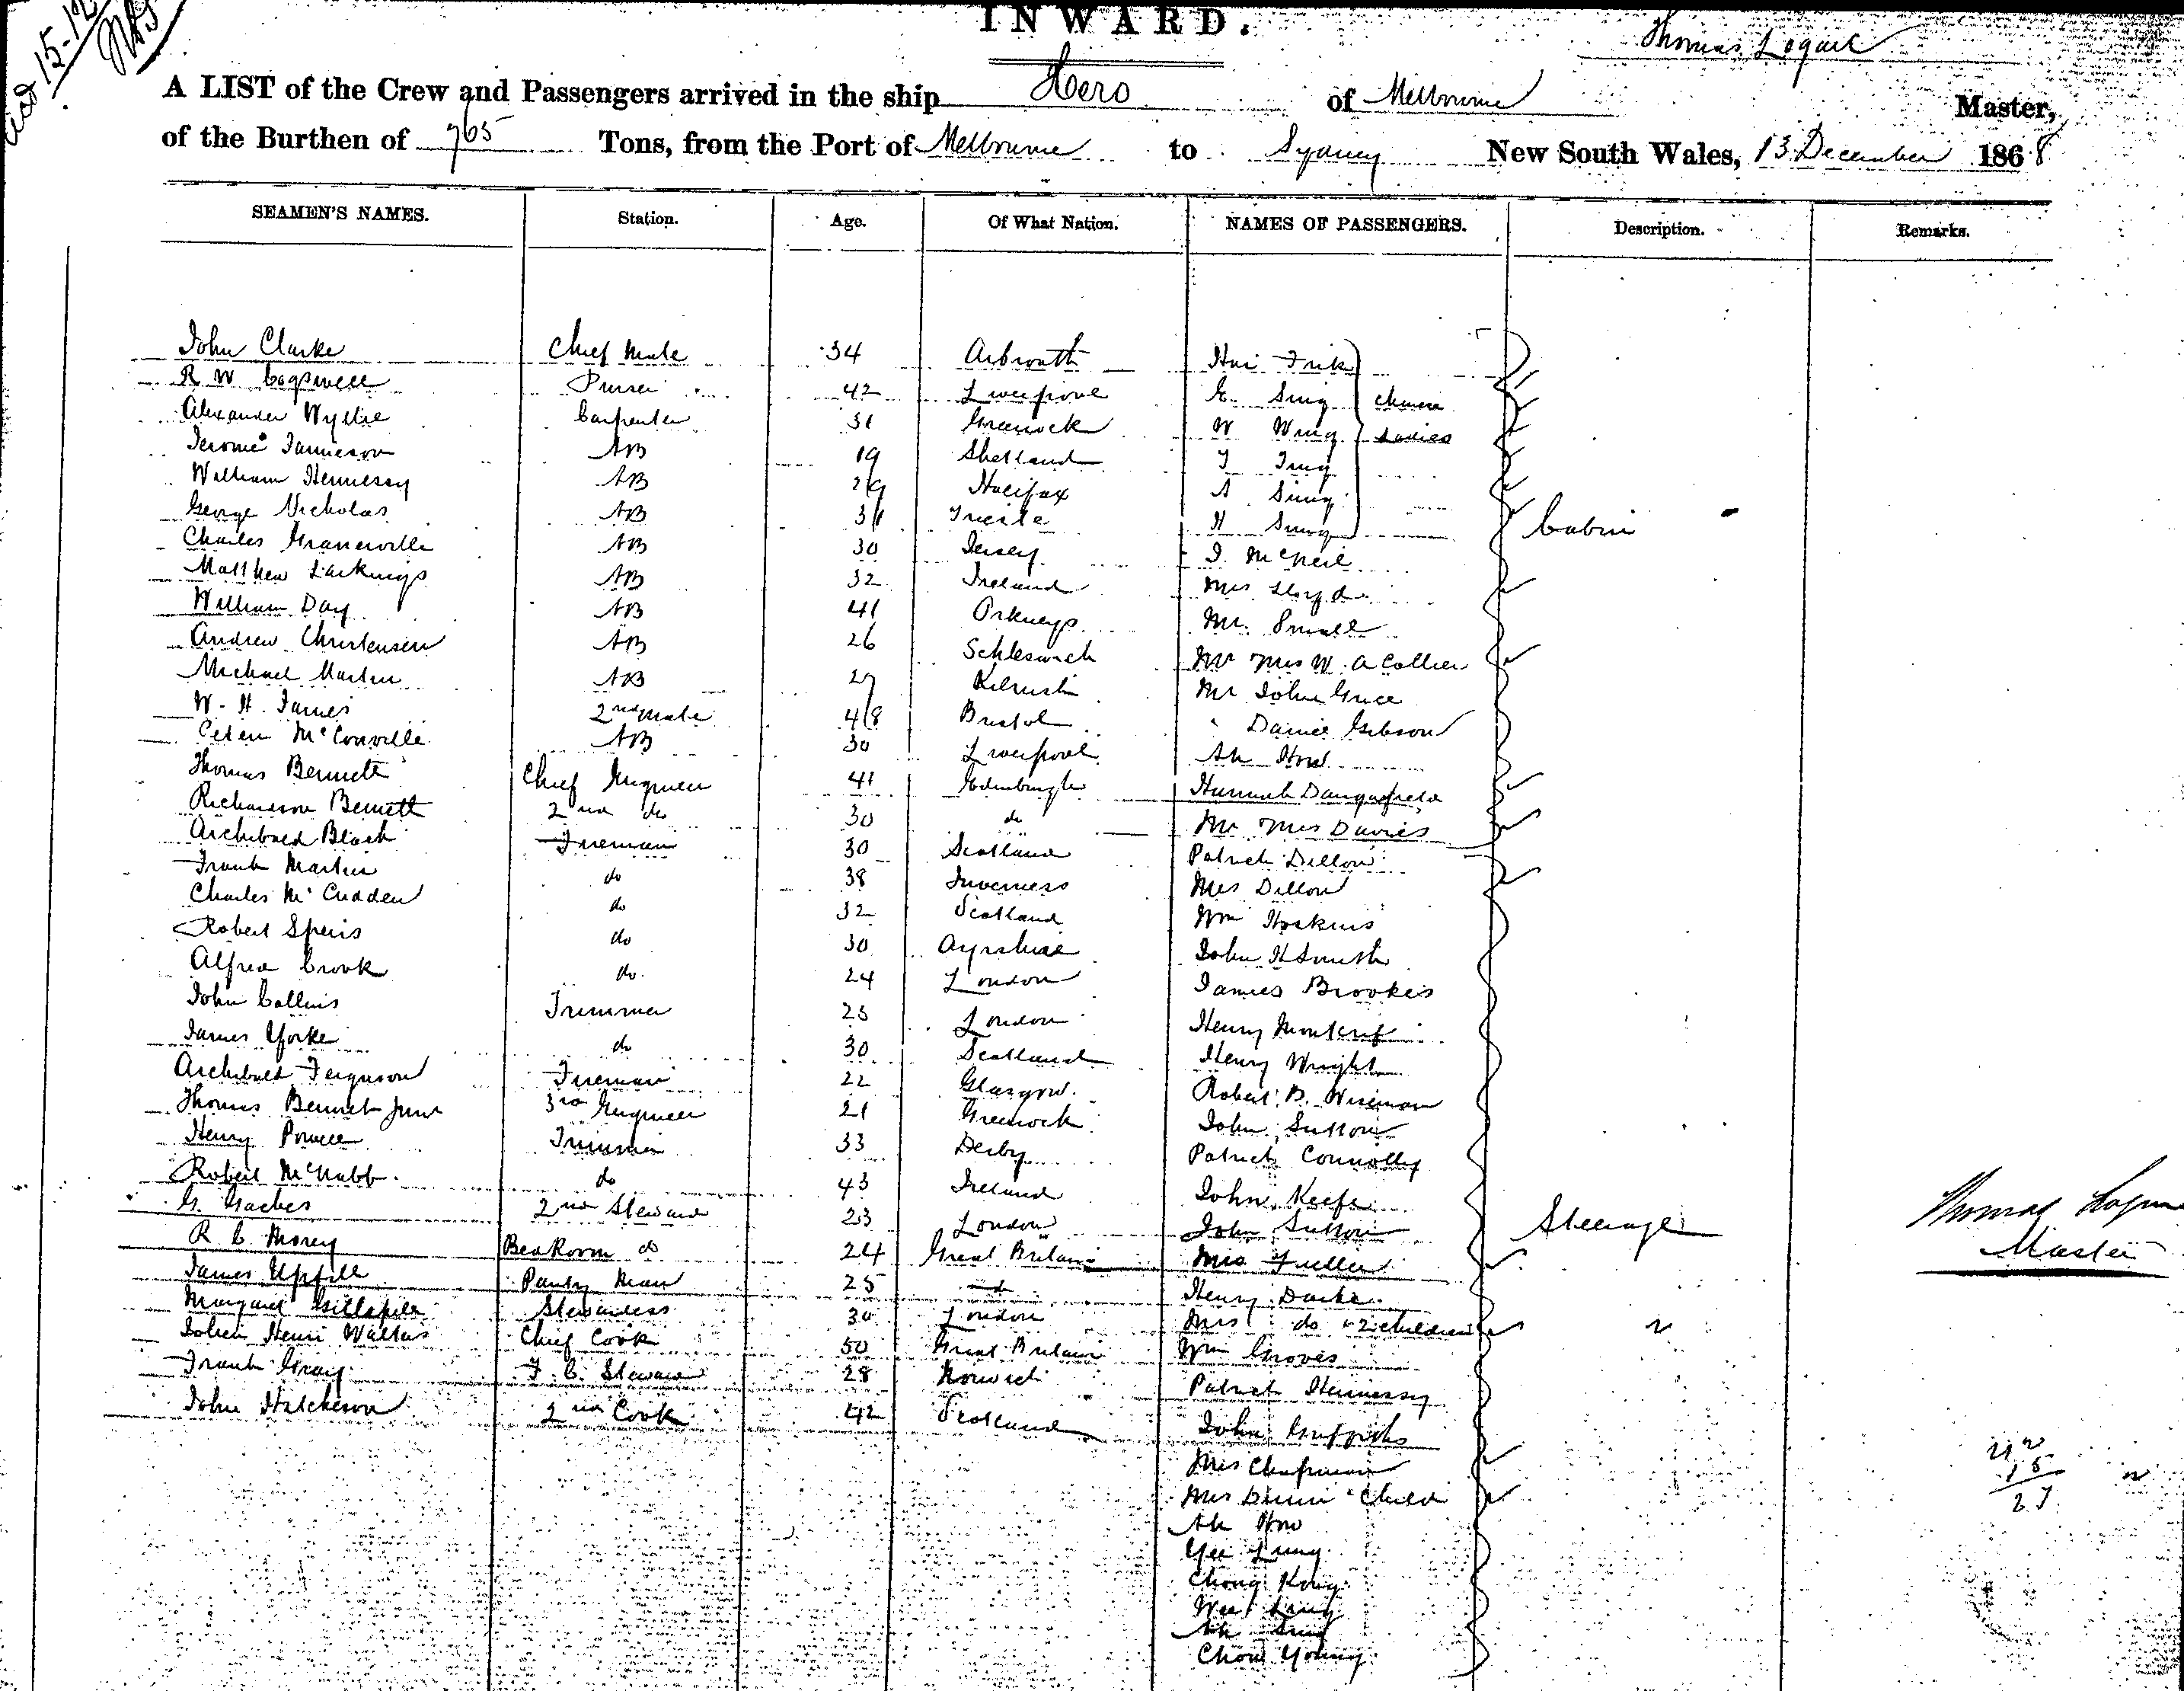 INWARD.
Thomas Logan
A LIST of the Crew and Passengers arrived in the ship Hero of Melbourne Master,
of the Burthen of 965 Tons, from the Port of Melbourne to Sydney New South Wales, 13 December 1868
SEAMEN'S NAMES. Station. Age. Of What Nation. NAMES OF PASSENGERS. Description. Remarks.
John Clarke Chief Mate 34 Arbroath Hui Frik
R W Cogswell Purser 42 Liverpool E. Sing Chinese
Alexander Wyllie Carpenter 31 Greenock W Wing Ladies
Jerome Jamieson AB 19 Shetland
William Hennessy AB 29 Halifax A Sing
George Nicholas AB 31 Trieste H Sung Cabin
Charles Granerville AB 30 Jersey J. McNeil
Matthew Larkings AB 32 Ireland Mrs Lloyd
William Day AB 41 Orkneys Mr. Small
Andrew Christensen AB 26 Schleswich Mr Mrs W. A Collier
Michael Martin AB 27 Kilrush Mr John Grice
W. H. James 2nd Mate 48 Bristol " Daniel Gibson
Peter McConville AB 30 Liverpool Ah How
Thomas Bennett Chief Engineer 41 Edinburgh Hannah Dangerfield
Richardson Bennett 2nd do 30 do Mr Mrs Davies
Archibald Black Fireman 30 Scotland Patrick Dillon
Frank Martin do 38 Inverness Mrs Dillon
Charles McCudden do 32 Scotland Wm Hoskins
Robert Speirs do 30 Ayrshire John H Smith
Alfred Crook do 24 London James Brookes
John Collins Trimmer 25 London Henry Montcrif
James Yorke do 30 Scotland Henry Wright
Archibald Ferguson Fireman 22 Glasgow Robert B. Wiseman
Thomas Bennet Junr 3rd Engineer 21 Greenock John Sutton
Henry Powell Trimmer 33 Derby Patrick Connolly
Robert McNabb do 43 Ireland John Keefe
G. Gaches 2nd Steward 23 London John Sutton Steerage
Thomas Logan
Master
R C Morey Bed Room do 24 Great Britain Mrs Fuller
James Upfill Pantry Man 25 do Henry Darke
Margaret Gillespie Stewardess 30 London Mrs do & 2 children
John Henri Walters Chief Cook 50 Great Britain Wm Groves
Frank Gray F. C. Steward 28 Norwich Patrick Hennessy
John Hutcheson 2nd Cook 42 Scotland John Griffiths
Mrs Chapman
Mrs Dunn & Child
Ah How
Yee Lung
Chong King
Wee Lung
Ah Sing
Chow Young